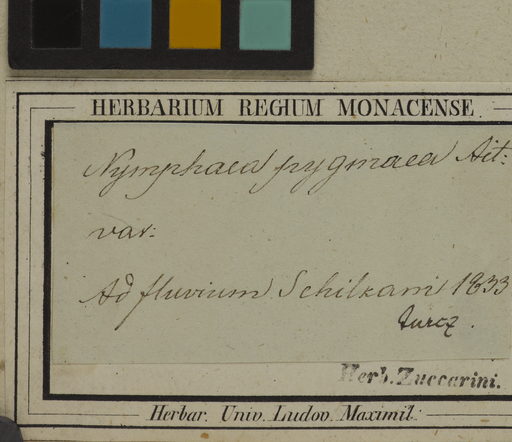 HERBARIUM REGIUM MONACENSE
Nymphaea pygmaea Ait:
var:
Ad fluvium Schilkam 1833
Turcz.
Herb. Zuccarini.
Herbar. Univ. Ludov. Maximil: